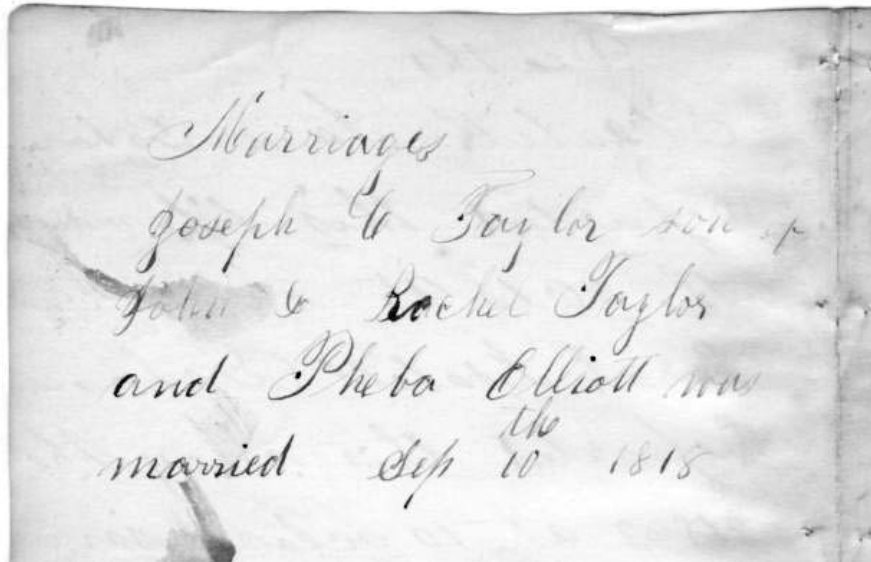 Marriages
Joseph C Taylor son of
John & Rachel Taylor
and Pheba Elliott was
married Sep 10th 1818